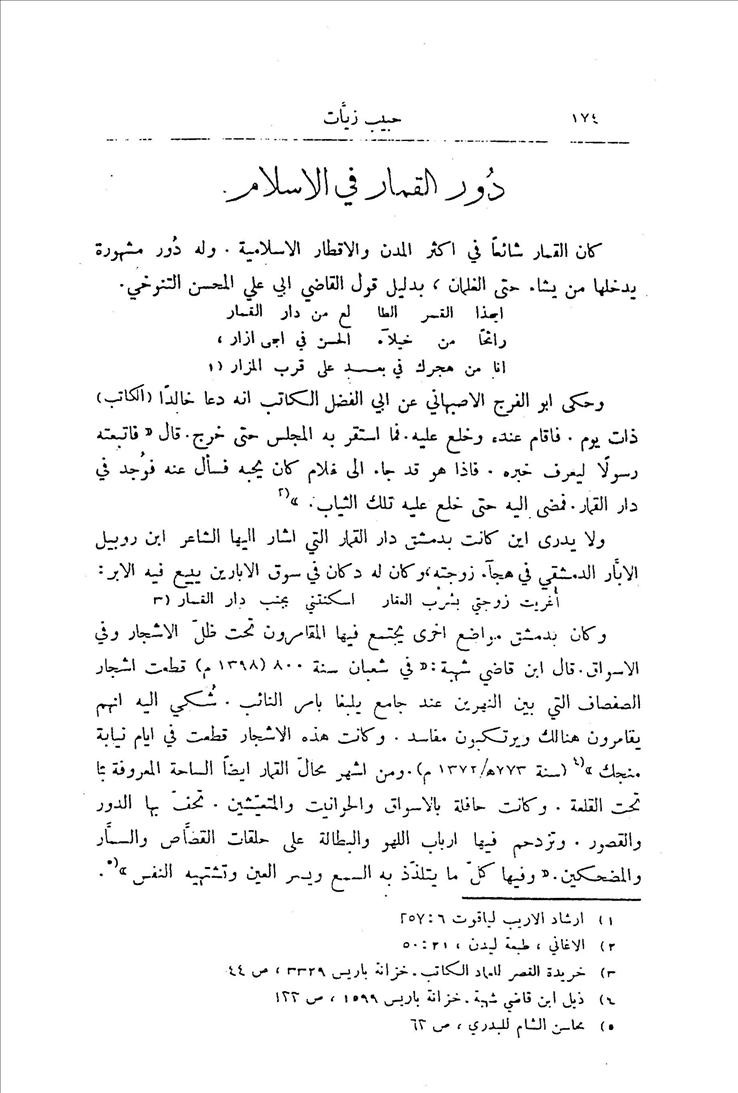 ١٧٤ حبيب زيَّات
دُور القمار في الاسلام.
كان القمار شائعاً في اكثر المدن والاقطار الاسلامية . وله دُور مشهورة
يدخلها من يشاء حتى الغلمان ، بدليل قول القاضي ابي علي المحسن التنوخي.
القمر الطا لع من دار القمار
رائحًا من خيلاء الحسن في ازار ،
انا من هجرك في بعد على قرب المزار (١
وحكى ابو الفرج الاصبهاني عن ابي الفضل الكاتب انه دعا خالدًا (الكاتب)
ذات يوم . فاقام عنده وخلع عليه. فما استقر به المجلس حتى خرج. قال « فاتبعته
رسولًا ليعرف خبره . فاذا هو قد جاء الى غلام كان يحبه فسأل عنه فوُجد في
دار القمار. فمضى اليه حتى خلع عليه تلك الثياب. »(٢
ولا يدرى اين كانت بدمشق دار القمار التي اشار اليها الشاعر ابن روبيل
الابَّار الدمشقي في هجآء زوجته، وكان له دكان في سوق الابارين يبيع فيه الابر:
أغريت زوجتي بشرب العقار اسكنتني بجنب دار القمار (٣
وكان بدمشق مواضع اخرى يجتمع فيها المقامرون تحت ظلّ الاشجار وفي
الاسواق. قال ابن قاضي شهبة: « في شعبان سنة ٨٠٠ (١٣٩٨ م) قطعت اشجار
الصفصاف التي بين النهرين عند جامع يلبغا بامر النائب . شُكي اليه انهم
يقامرون هنالك ويرتكبون مفاسد . وكانت هذه الاشجار قطعت في ايام نيابة
منجك »(٤ (سنة ٧٧٣ه/١٣٧٢ م). ومن اشهر محالّ القمار ايضاً الساحة المعروفة بما
تحت القلعة . وكانت حافلة بالاسواق والحوانيت والمتعيّشين . تحفّ بها الدور
والقصور . وتزدحم فيها ارباب اللهو والبطالة على حلقات القصَّاص والسمَّار
والمضحكين. « وفيها كلّ ما يتلذّذ به السمع ويسر العين وتشتهيه النفس »(٥ .
١) ارشاد الاريب لياقوت ٦ : ٢٥٧
٢) الاغاني ، طبعة ليدن ، ٢١ : ٥٠
٣) خريدة القصر للعماد الكاتب . خزانة باريس ٣٣٢٩ ، ص ٤٤
٤) ذيل ابن قاضي شهبة . خزانة باريس ١٥٩٩ ، ص ١٢٢
٥) محاسن الشام للبدري ، ص ٦٢